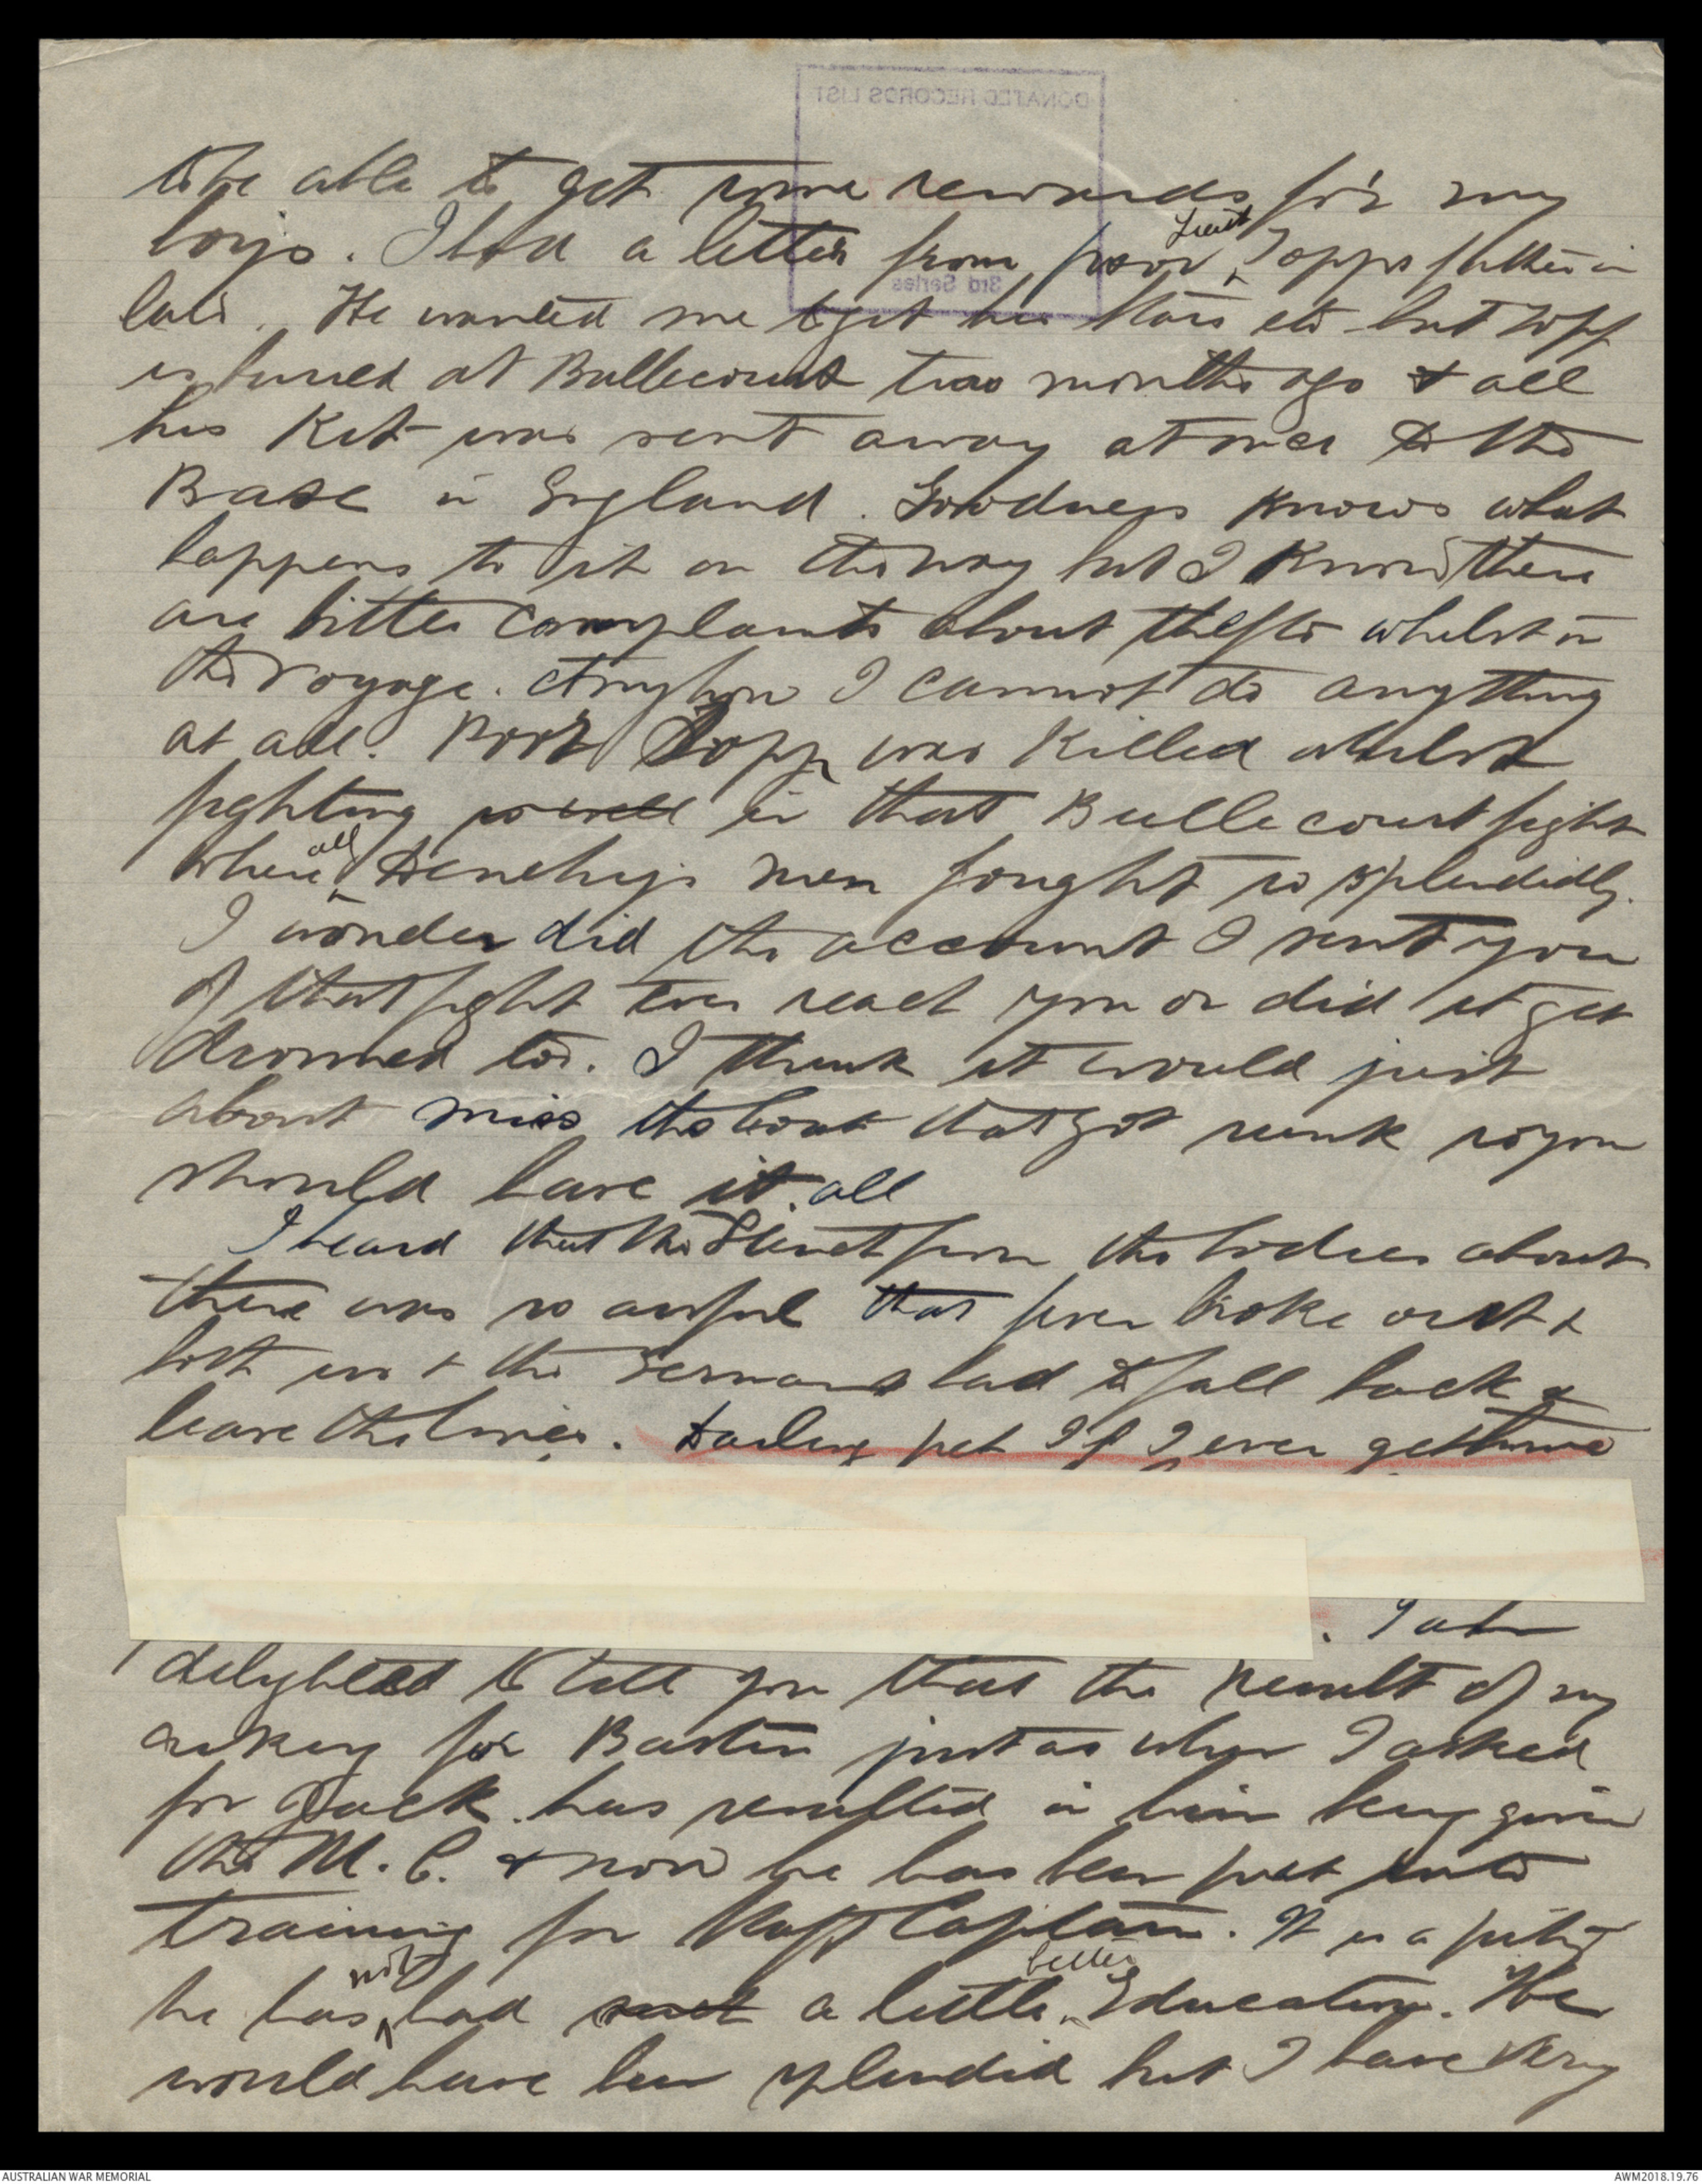 DONATED RECORDS LIST
3rd Series
to be able to get some rewards for my
boys. I had a letter from poor Lieut Topps father in
law. He wanted me to get his stars etc but Topp
is buried at Bullecourt two months ago & all
his Kit was sent away at once to the
Base in England. Goodness knows what
happens to it on the way but I know there
are bitter complaints about thefts whilst on
the voyage. Anyhow I cannot do anything
at all. Poor Topp was killed whilst
fighting so well in that Bullecourt fight
where all Denehy's men fought so splendidly.
I wonder did the account I sent you
of that fight ever reach you or did it get
drowned too. I think it would just
about miss the boat that got sunk so you
should have it all
I heard that the stench from the bodies about
there was so awful that fever broke out &
both us & the Germans had to fall back &
leave the lines. Darling pet If I ever get home
. I am
delighted to tell you that the result of my
asking for Bastin just as when I asked
for Jack has resulted in him being given
the M.C. & now he has been put into
training for Staff Captain. It is a pity
he has not had a little better Education. He
would have been splendid but I have very
AUSTRALIAN WAR MEMORIAL
AWM2018.19.76